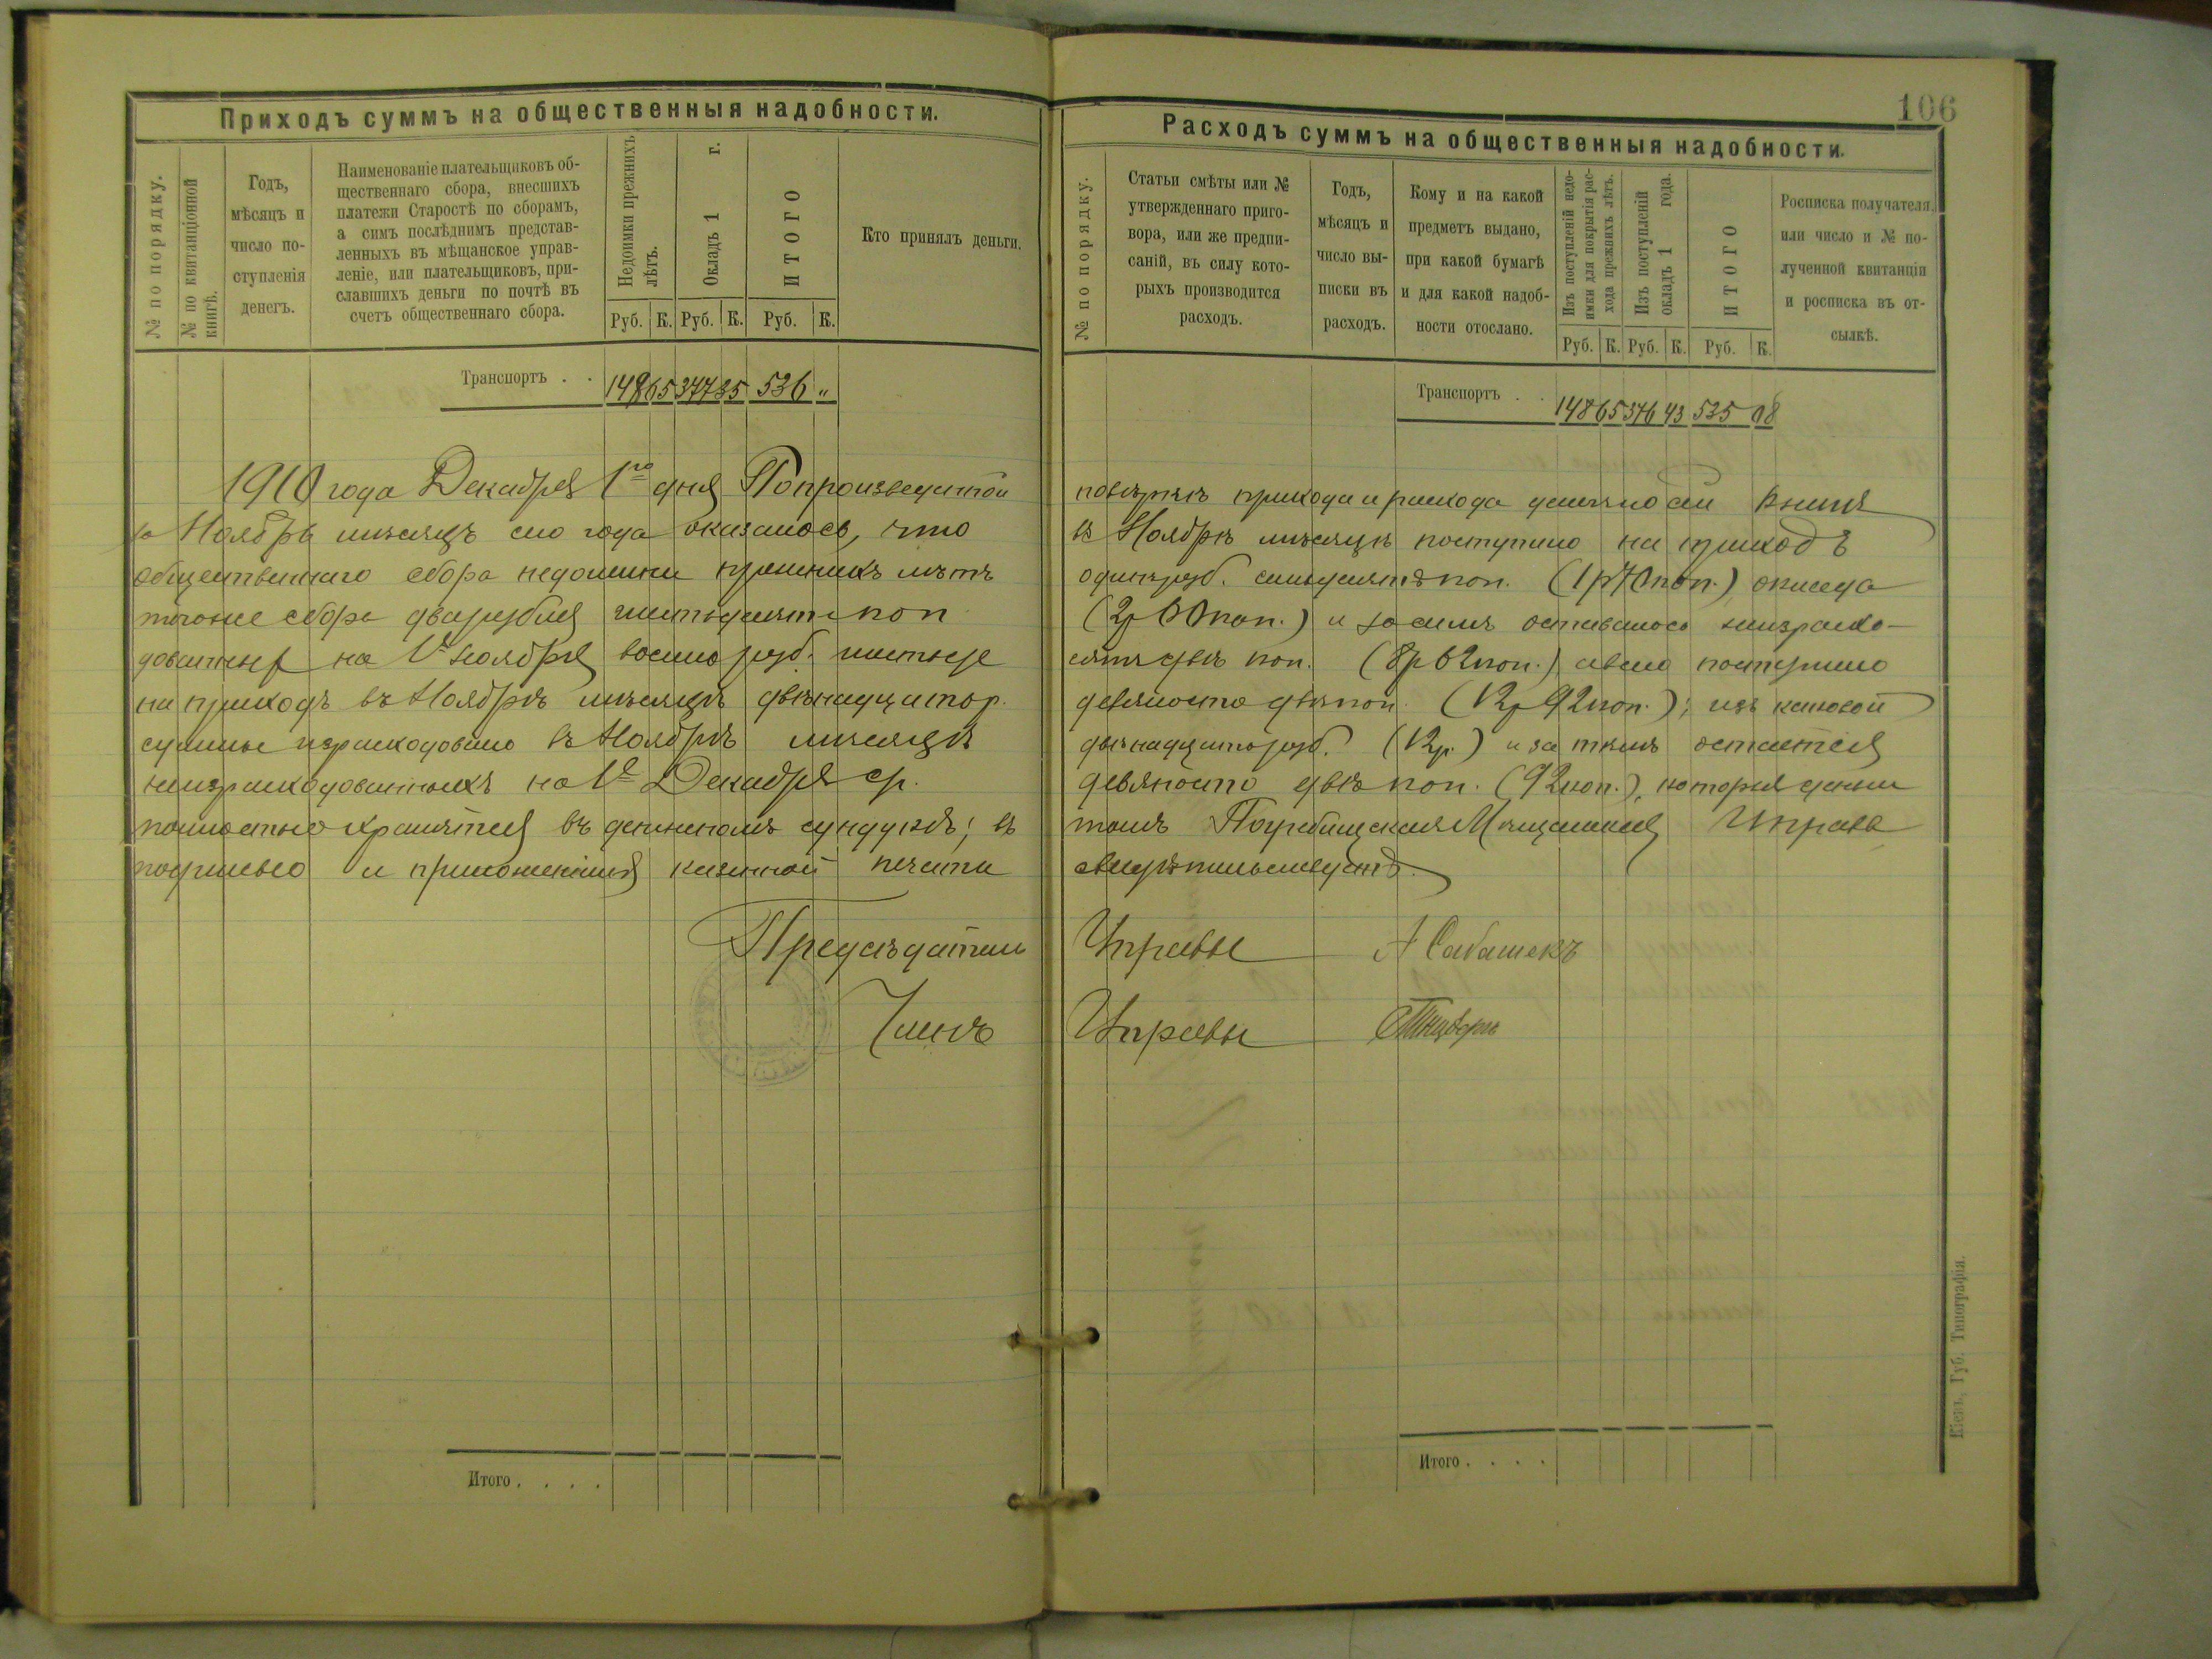 106
Приходъ суммъ на общественныя надобности.
№ по порядку.
№ по квитанціонной
книгѣ.
Годъ,
мѣсяцъ и
число по-
ступленія
денегъ.
Наименованіе плательщиковъ об-
щественнаго сбора, внесшихъ
платежи Старостѣ по сборамъ,
а симъ послѣднимъ представ-
ленныхъ въ мѣщанское управ-
леніе, или плательщиковъ, при-
славшихъ деньги по почтѣ въ
счетъ общественнаго сбора.
Недоимки прежнихъ
лѣтъ.
Окладъ 1 г.
ИТОГО
Кто принялъ деньги.
Руб. К. Руб. К. Руб. К.
Транспортъ . . 148 65 377 35 536 „
1910 года Декабря 1го дня По произведенной
за Ноябрь мѣсяцъ сего года оказалось, что
общественнаго сбора недоимки прежнихъ лѣтъ
тогоже сбора два рубля шестьдесятъ коп
дованных на 1е Ноября восемь руб. шестьде
на приходъ въ Ноябрѣ мѣсяцѣ двѣнадцать р.
суммы израсходовано въ Ноябрѣ мѣсяцѣ
неизрасходованныхъ на 1е Декабря с.г.
полностью хранятся въ денежномъ сундукѣ; въ
подписью и приложеніемъ казенной печати
Предсѣдатель
Членъ
Итого . . . .
Расходъ суммъ на общественныя надобности.
№ по порядку.
Статьи смѣты или №
утвержденнаго приго-
вора, или же предпи-
саній, въ силу кото-
рыхъ производится
расходъ.
Годъ,
мѣсяцъ и
число вы-
писки въ
расходъ.
Кому и на какой
предметъ выдано,
при какой бумагѣ
и для какой надоб-
ности отослано.
Изъ поступленій недо-
имки для покрытія рас-
хода прежнихъ лѣтъ.
Изъ поступленій
окладъ 1 года.
ИТОГО
Росписка получателя,
или число и № по-
лученной квитанціи
и росписка въ от-
сылкѣ.
Руб. К. Руб. К. Руб. К.
Транспортъ . . 148 65 376 43 535 08
повѣркѣ прихода и расхода денегъ по сей книгѣ
въ Ноябрѣ мѣсяцѣ поступило на приходъ
одинъ руб. семьдесятъ коп. (1р 70 коп.), оклада
(2р 60 коп.) и засимъ оставалось неизрасхо-
сятъ двѣ коп. (8р 62 коп.) а всего поступило
девяносто двѣ коп. (12р 92 коп.); изъ каковой
двѣнадцать руб. (12р.) и за тѣмъ остается
девяносто двѣ коп. (92 коп.), которыя деньги
томъ Погребищская Мѣщанская Управа
свидѣтельствуетъ.
Управы
Управы
Итого . . . .
Кіевъ, Губ. Типографія.